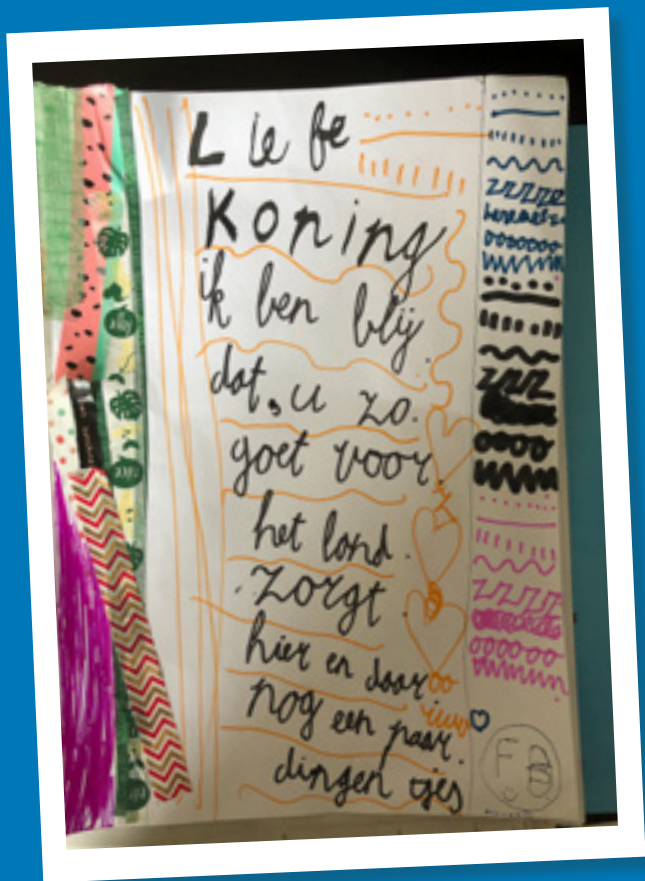 Liefe
Koning
ik ben blij
dat, u zo.
goet voor.
het land.
zorgt.
hier en daar
nog een paar.
dingen tjes
FB